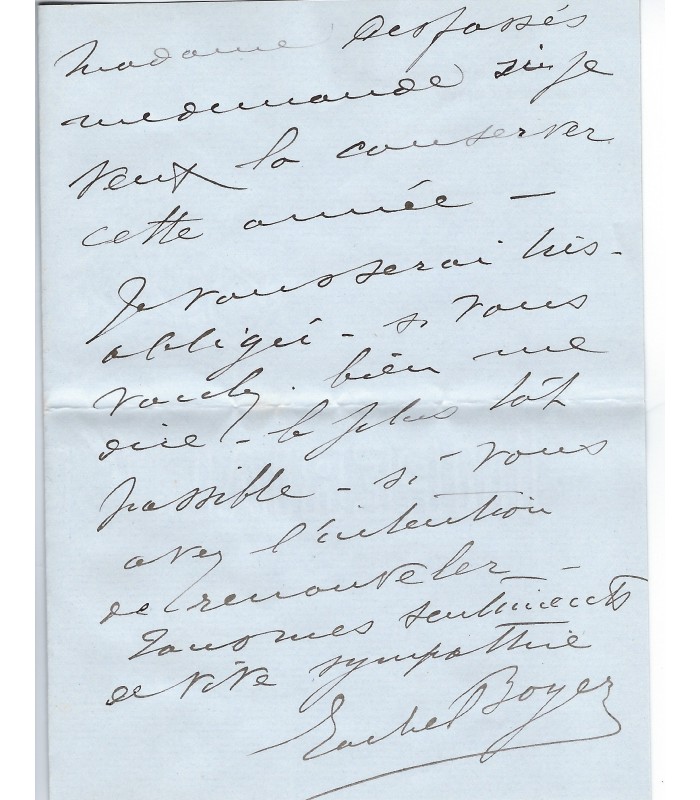 Madame Desfossés
me demande si je
veux la conserver
cette année —
Je vous serai très-
obligé — si vous
voulez bien me
dire — le plus tôt
possible — si — vous
avez l'intention
de renouveler —
Tous mes sentiments
de vive sympathie
Rachel Boyer